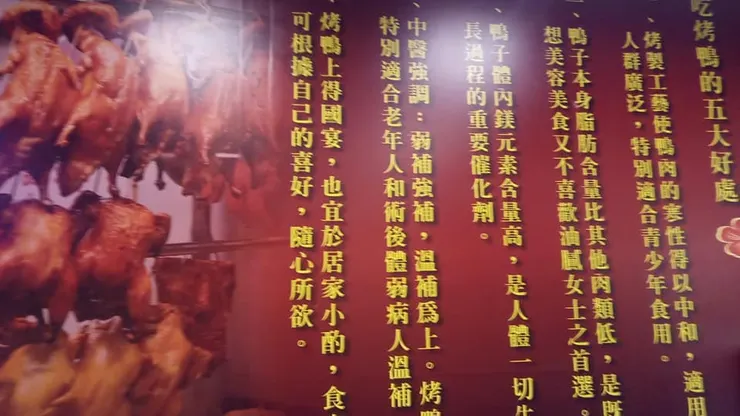 吃烤鴨的五大好處
、烤製工藝使鴨肉的寒性得以中和，適用
人群廣泛，特別適合青少年食用。
、鴨子本身脂肪含量比其他肉類低，是既
想美容美食又不喜歡油膩女士之首選。
、鴨子體內鎂元素含量高，是人體一切生
長過程的重要催化劑。
、中醫強調：弱補強補，溫補為上。烤鴨
特別適合老年人和術後體弱病人溫補
、烤鴨上得國宴，也宜於居家小酌，食
可根據自己的喜好，隨心所欲。